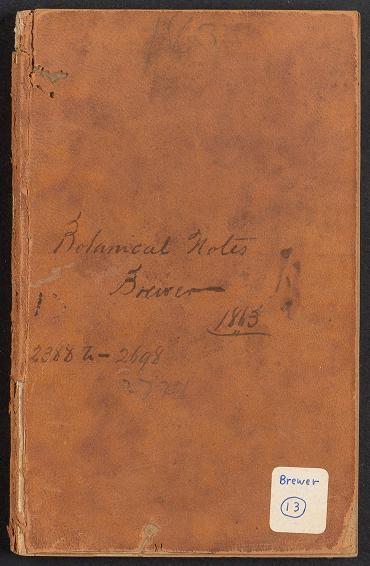 1863
Botanical Notes
Brewer
1863
2388 to - 2698
Brewer
13